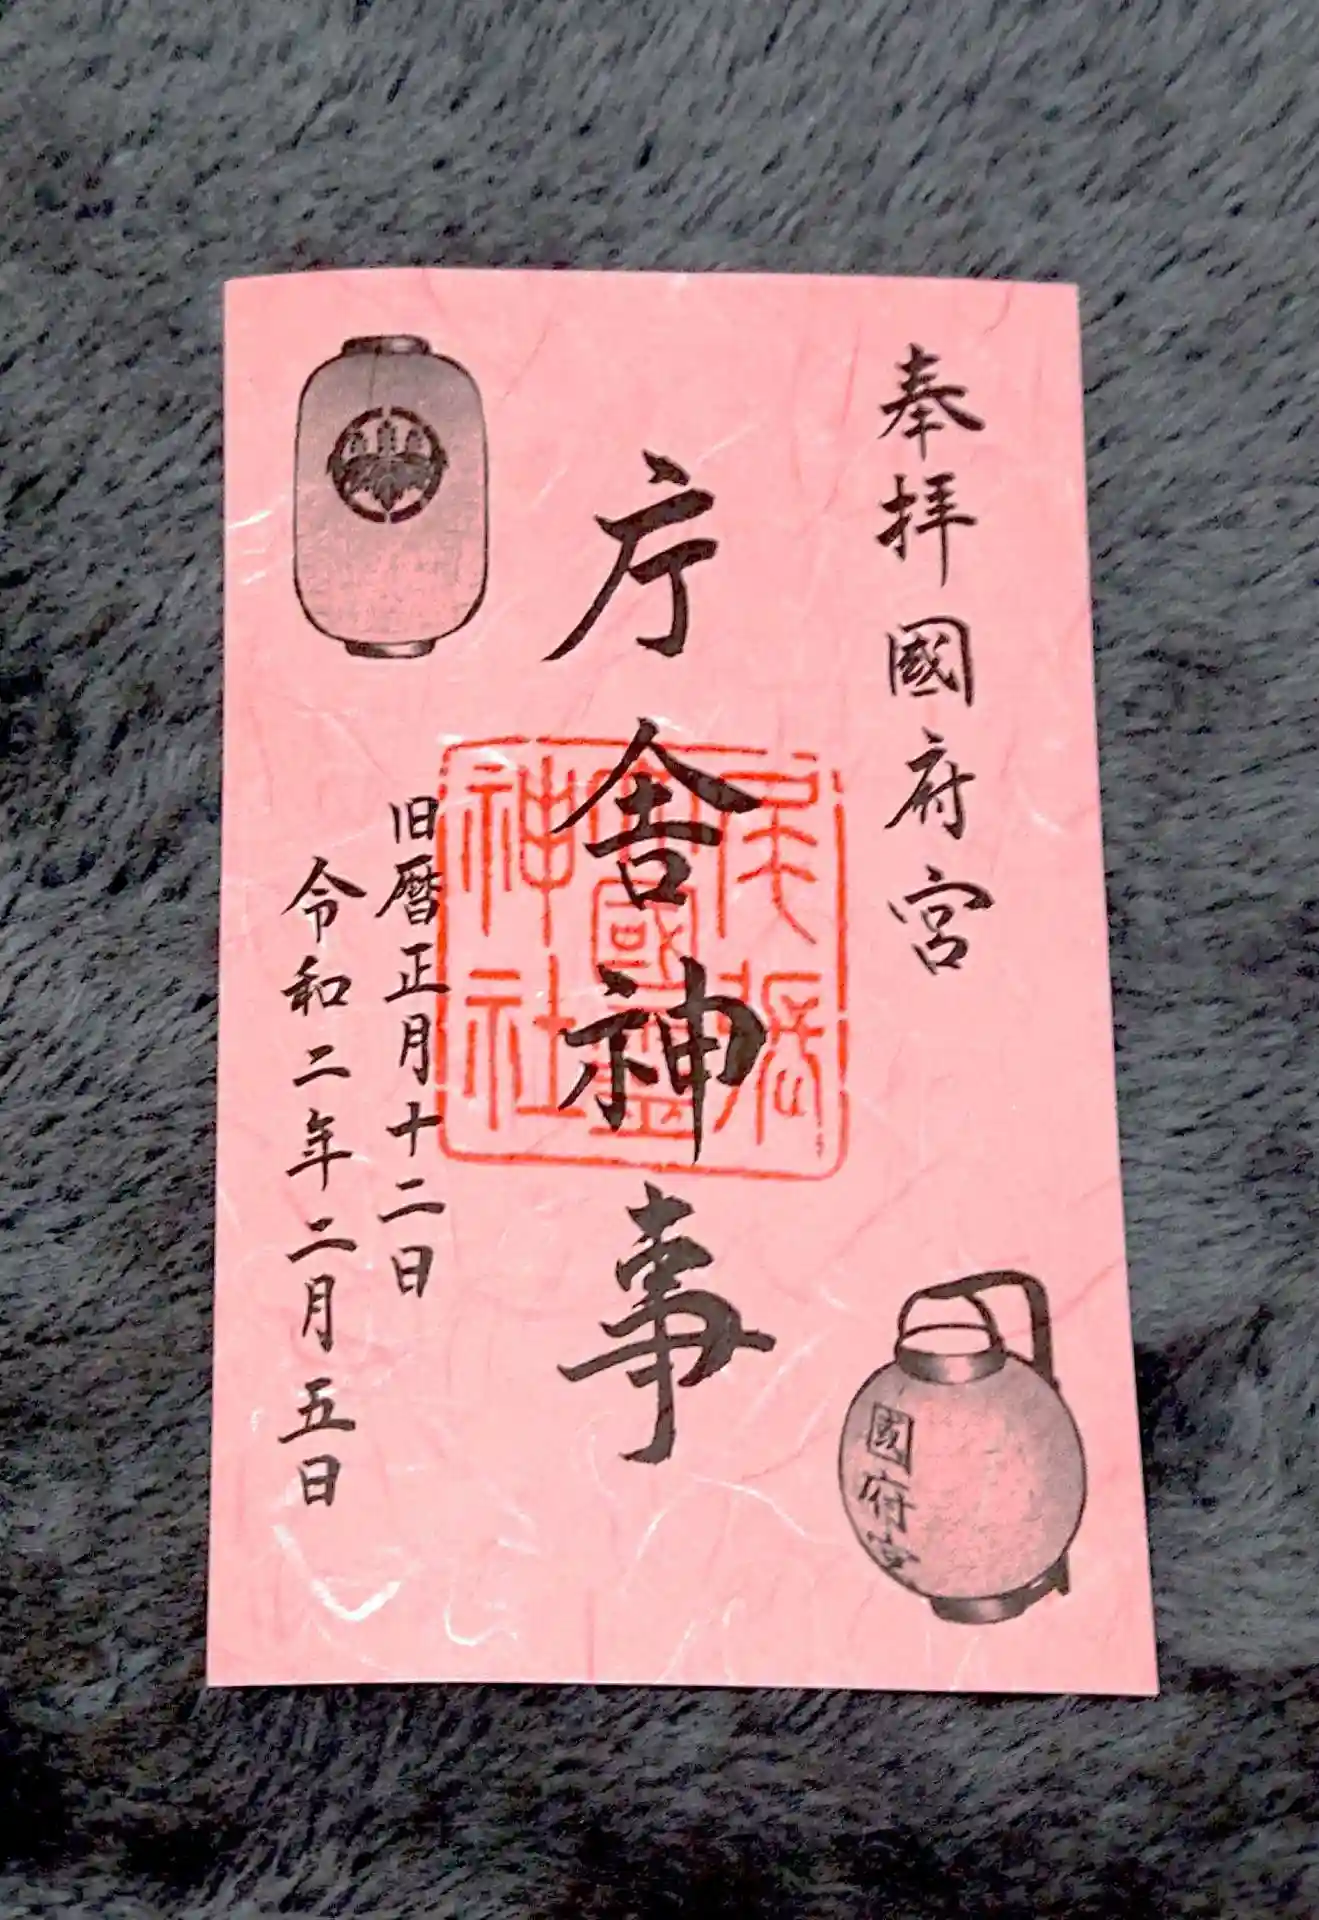 奉拝國府宮
庁舎神事
尾張
大國霊
神社
旧暦正月十二日
令和二年二月五日
國府宮